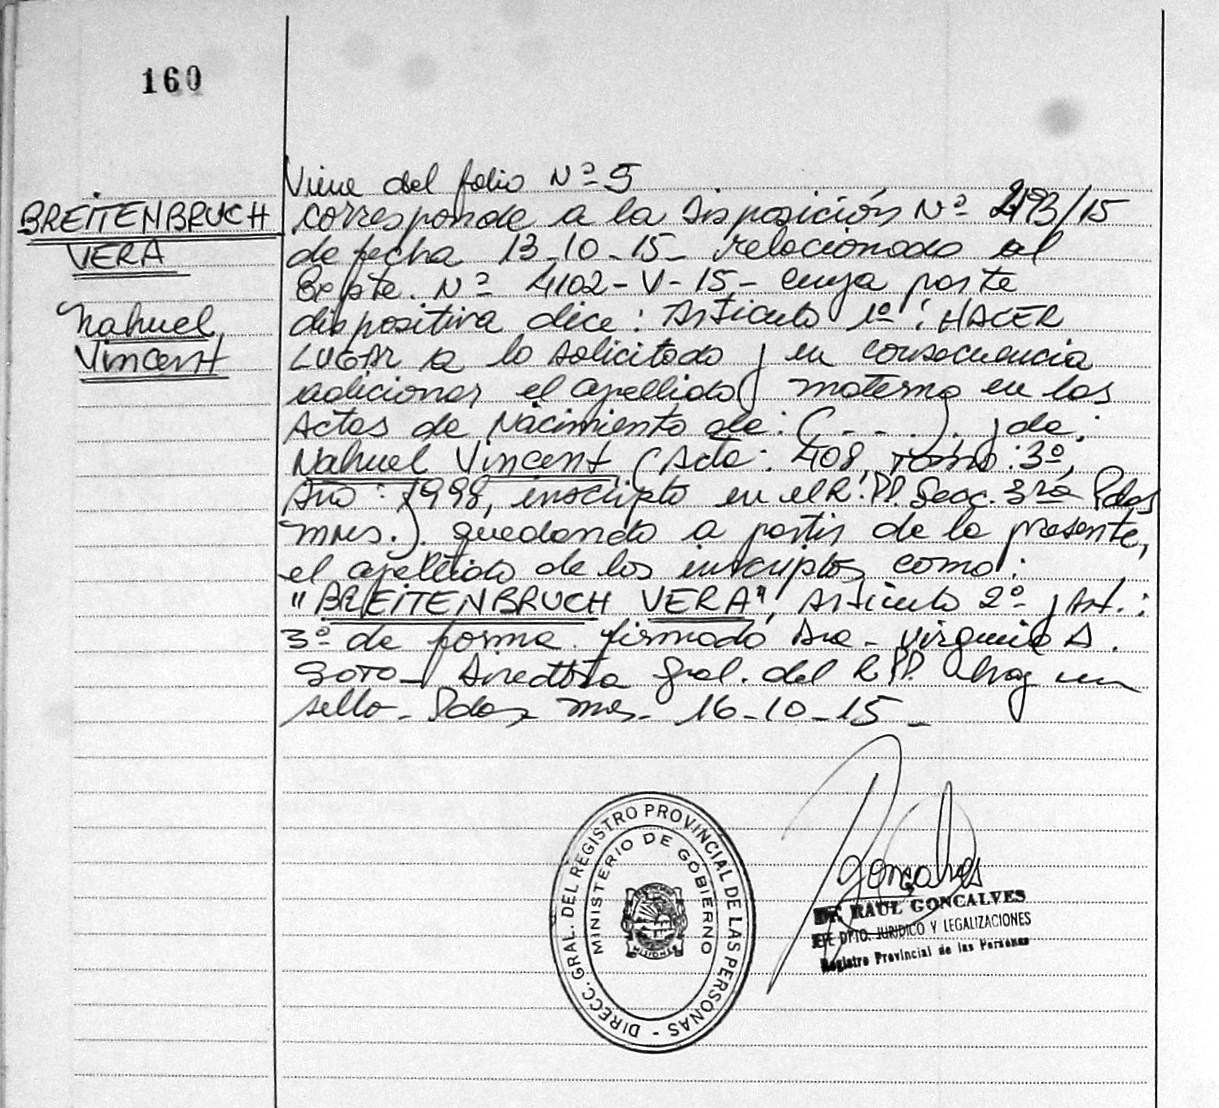 160
BREITENBRUCH
VERA
Nahuel
Vincent
Viene del folio Nº 5
corresponde a la Disposición Nº 2193/15
de fecha 13-10-15- relacionado al
Expte. Nº 4102-V-15,- cuya parte
dispositiva dice: Artículo 1º: HACER
LUGAR a lo solicitado y en consecuencia
adicionar el apellido materno en las
Actas de Nacimiento de: (- - -). y de:
Nahuel Vincent (Acta: 408, Tomo: 3º,
Año: 1998, inscripto en el R.PP. Secc. 3ra Pdas
mnes.). quedando a partir de la presente,
el apellido de los inscriptos como:
"BREITENBRUCH VERA", Artículo 2º y Art.:
3º de forma. firmado Dra. Virginia A.
Soto- Directora Gral. del R.PP. Hay un
sello- Pdas, mnes- 16-10-15-
DIRECC. GRAL. DEL REGISTRO PROVINCIAL DE LAS PERSONAS -
MINISTERIO DE GOBIERNO
MISIONES
Rgoncalves
Dr. RAUL GONCALVES
JEFE DPTO. JURIDICO Y LEGALIZACIONES
Registro Provincial de las Personas